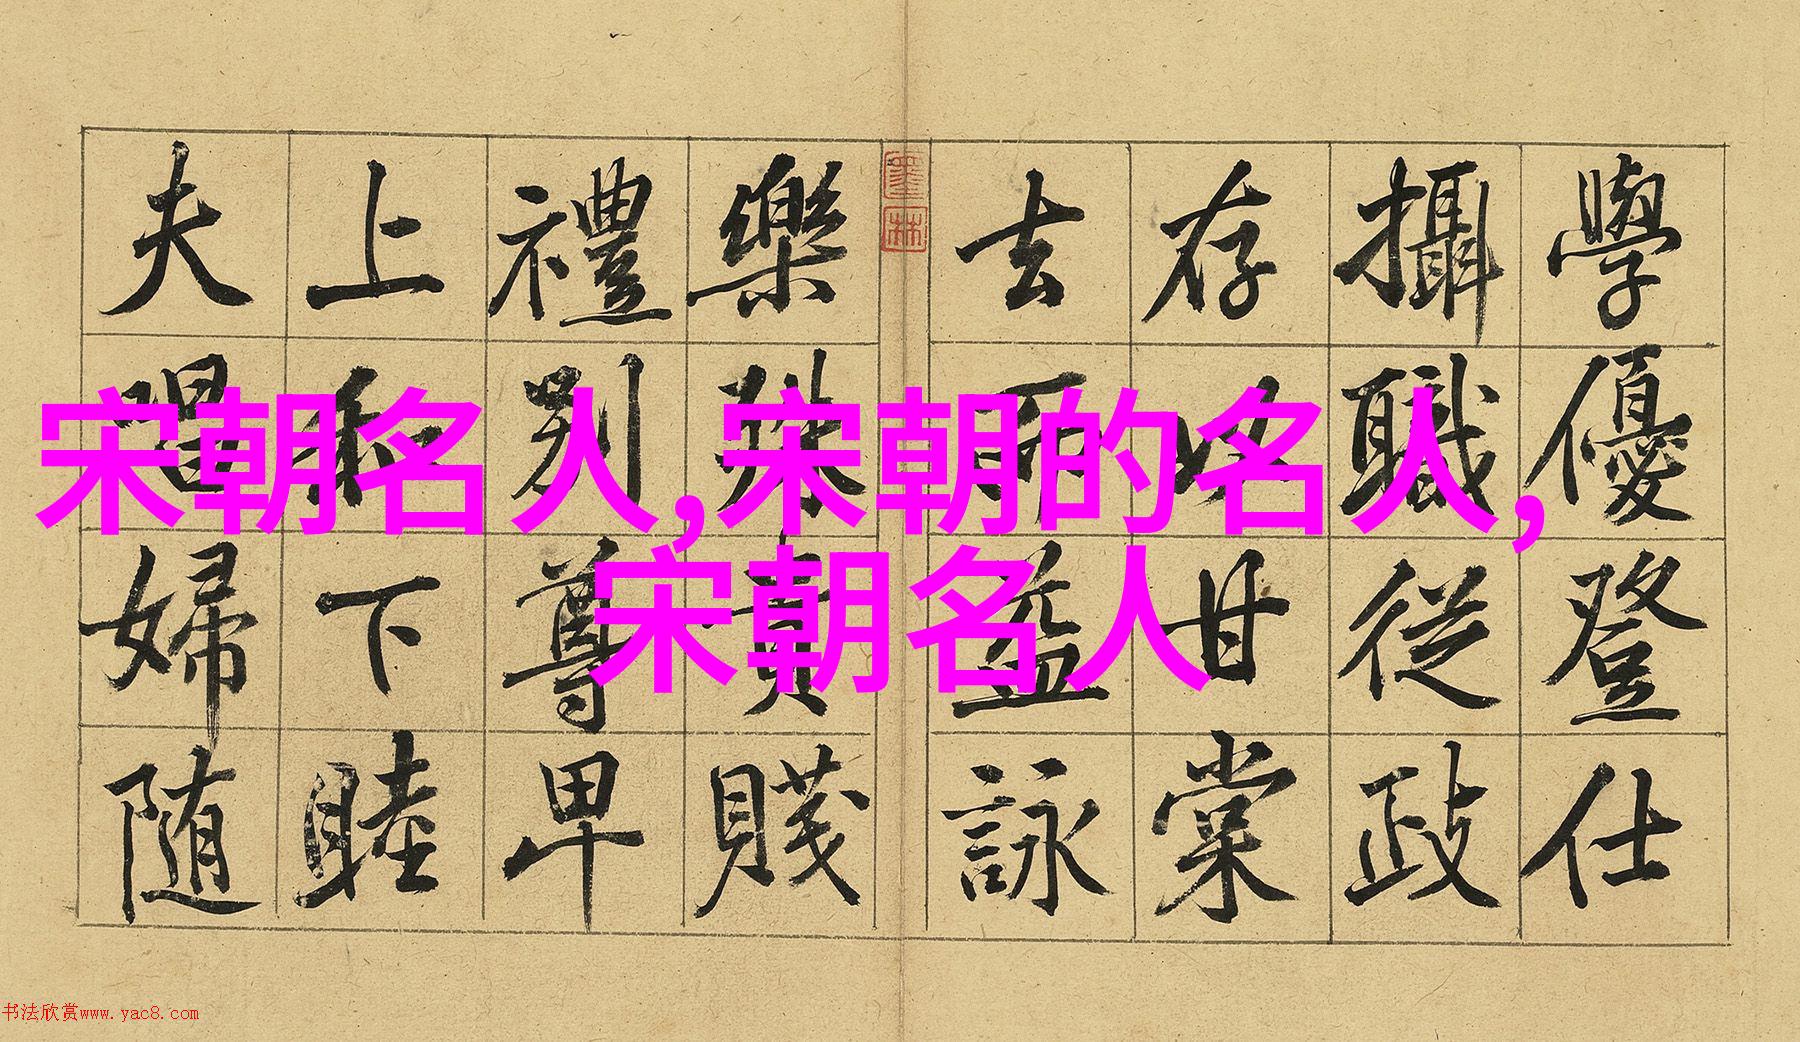 宋朝名人,宋朝的名人,
宋朝名人
學優登仕
攝職從政
存以甘棠
去而益詠
樂殊貴賤
禮别尊卑
上和下睦
夫唱婦随
墨林
书法欣赏www.yac8.com